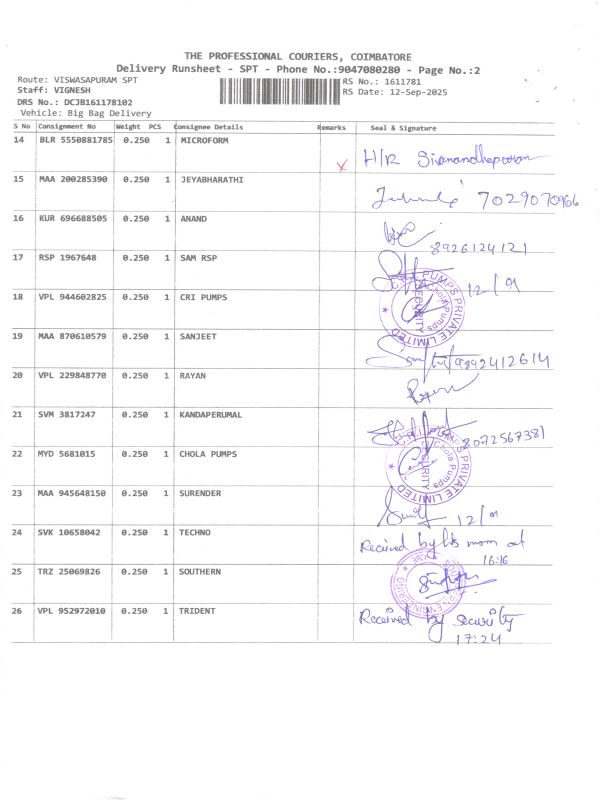 THE PROFESSIONAL COURIERS, COIMBATORE
Delivery Runsheet - SPT - Phone No.:9047080280 - Page No.:2
Route: VISWASAPURAM SPT
RS No.: 1611781
Staff: VIGNESH
RS Date: 12-Sep-2025
DRS No.: DCJB161178102
Vehicle: Big Bag Delivery
S No Consignment No Weight PCS Consignee Details Remarks Seal & Signature
14 BLR 5550881785 0.250 1 MICROFORM X H/R
15 MAA 200285390 0.250 1 JEYABHARATHI 7029070966
16 KUR 696688505 0.250 1 ANAND 8926124121
17 RSP 1967648 0.250 1 SAM RSP 12/9
18 VPL 944602825 0.250 1 CRI PUMPS PUMPS PRIVATE LIMITED Chola Pumps SECURITY
19 MAA 870610579 0.250 1 SANJEET 9892412614
20 VPL 229848770 0.250 1 RAYAN
21 SVM 3817247 0.250 1 KANDAPERUMAL 8072567381
22 MYD 5681015 0.250 1 CHOLA PUMPS PUMPS PRIVATE LIMITED Chola Pumps SECURITY
23 MAA 945648150 0.250 1 SURENDER 12/9
24 SVK 10658042 0.250 1 TECHNO Received by his mom at 16:16
25 TRZ 25069826 0.250 1 SOUTHERN
26 VPL 952972010 0.250 1 TRIDENT Received by security 17:24